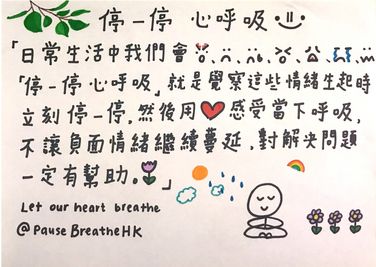 停一停 心呼吸
「日常生活中我們會
「停一停 心呼吸」就是覺察這些情緒生起時
立刻停一停,然後用❤️感受當下呼吸,
不讓負面情緒繼續蔓延,對解決問題
一定有幫助。🌷」
Let our heart breathe
@PauseBreatheHK